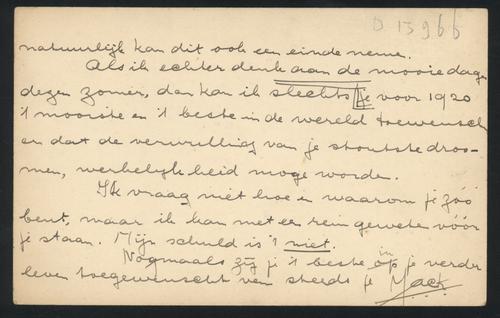 D 13966
natuurlijk kan dit ook een einde neme.
Als ik echter denk aan de mooie dagen
dezen zomer, dan kan ik slechts je voor 1920
't mooiste en 't beste in de wereld toewensch
en dat de vervulling van je stoutste droo-
men, werkelijkheid moge worde.
Ik vraag niet hoe en waarom je zóó
bent, maar ik kan met een rein geweten vóór
je staan. Mijn schuld is 't niet.
Nogmaals zij je 't beste in je verder
leven toegewenscht van steeds je Mack